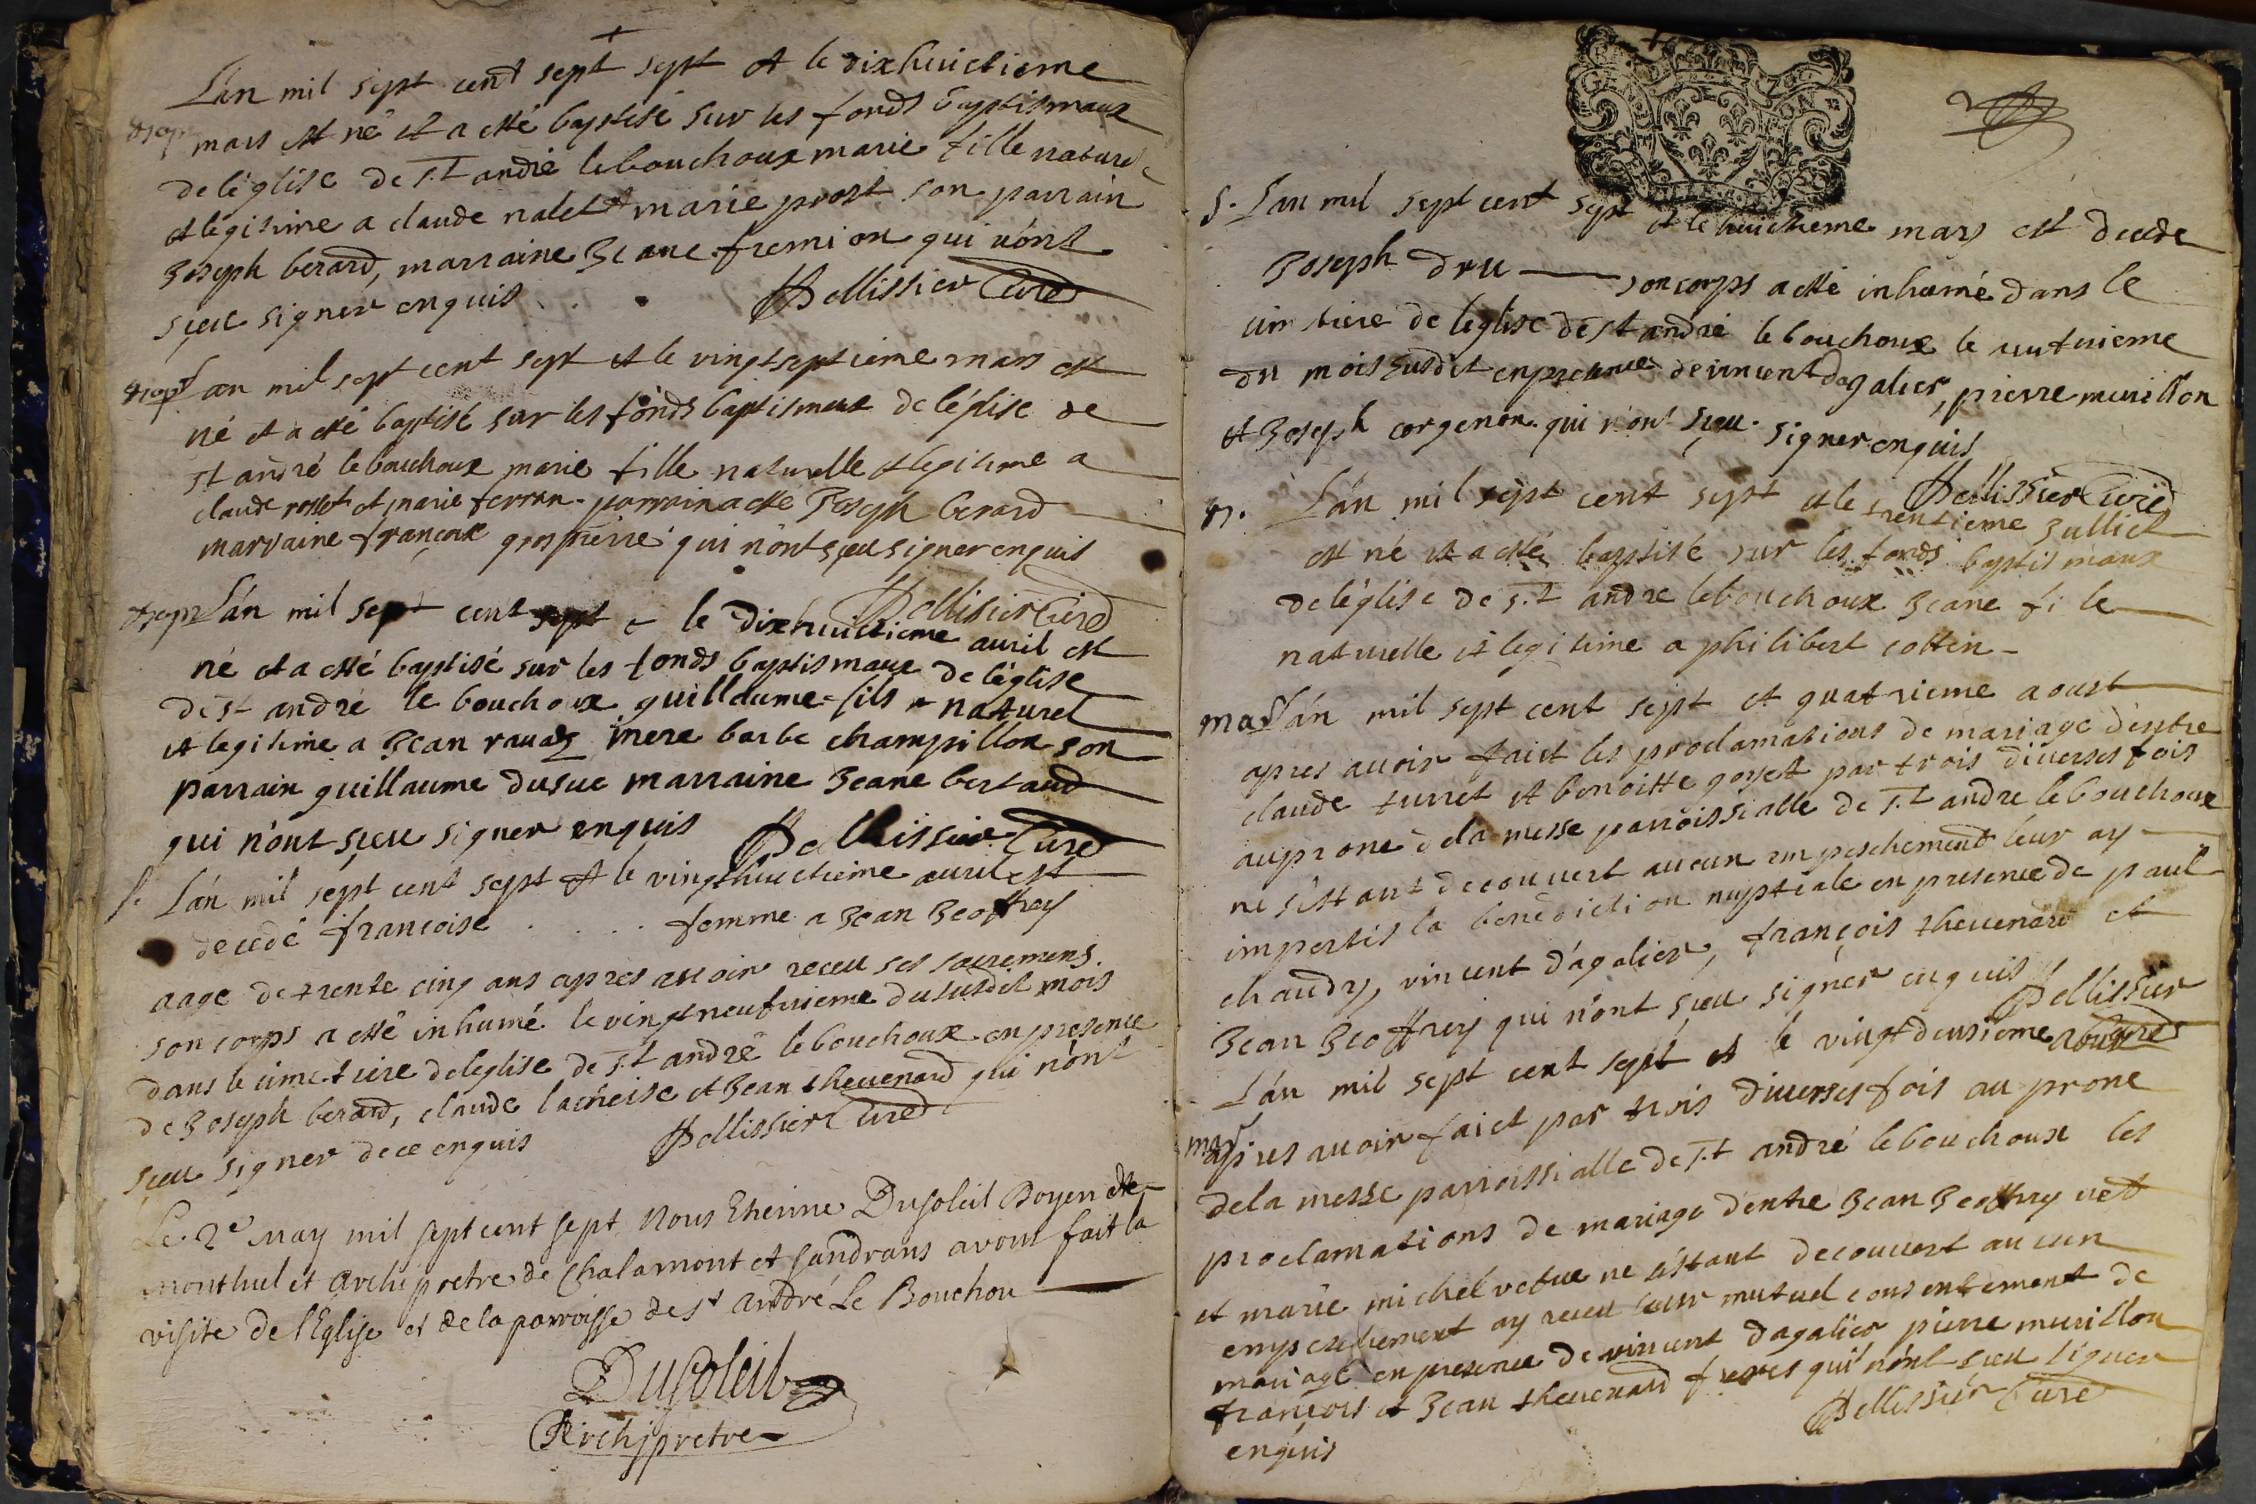 L'an mil sept cent sept sept et le dixhuictieme
mars est né et a esté baptisé sur les fonds baptismaux
de léglise de S.t andré le bouchoux marie fille nature
et legitime a claude nalet et marie prost son parrain
Joseph berard, marraine Jeane fremion qui n'ont
sçeu signer enquis . . . Pellissier Curé
bapt L'an mil sept cent sept et le vingtseptieme mars est
né et a esté baptisé sur les fonds baptismaux de léglise de
st andré le bouchoux marie fille naturelle et legitime a
claude rosset et marie ferran parrain a esté Joseph Berard
marraine françoise grospierre qui n'ont sçeu signer enquis
Pellissier Curé
bapt L'an mil sept cent sept & le dixhuictieme avril est
né et a esté baptisé sur les fonds baptismaux de léglise
de st andré le bouchoux guillaume fils naturel
et legitime a Jean ravaz mere barbe champillon son
parrain guillaume dusuc marraine Jeane bertaud
qui n'ont sçeu signer enquis Pellissier Curé
S. L'an mil sept cent sept et le vingthuictieme avril est
decedé françoise . . . . femme a Jean Geoffray
aagé de trente cinq ans apres avoir receu ses sacremens.
son corps a esté inhumé le vingtneufvieme du susdit mois
dans le cimetiere de leglise de S.t andré le bouchoux en presence
de Joseph berard, claude et Jean thevenard qui n'ont
sçeu signer de ce enquis Pellissier Curé
Le 2e may mil sept cent sept Nous Etienne Dusoleil Doyen de
monthuel et archiprêtre de Chalamont et Sandrans avons fait la
visite de l'Eglise et de la parroisse de st André Le Bouchou
Dusoleil
Archiprêtre
S. L'an mil sept cent sept et le huictieme mars est decedé
Joseph dru son corps a esté inhumé dans le
cimetiere de leglise de st andré le bouchoux le
du mois susdit en presence de vincent dagalier, pierre murillon
et Joseph corgenon qui n'ont sçeu signer enquis
Pellissier Curé
L'an mil sept cent sept et le trentieme Julliet
est né et a esté baptisé sur les fonds baptismaux
de léglise de S.t andre le bouchoux Jeane fi le
naturelle et legitime a philibert cottin
mar L'an mil sept cent sept et quatrieme aoust
apres avoir faict les proclamations de mariage d'entre
claude turret et benoitte goyet par trois diverses fois
au prone de la messe parroissialle de S.t andré le bouchoux
ne s'estant decouvert aucun empeschement leur ay
impertis la benediction nuptiale en presence de paul
chaudy, vincent dagalier, françois thevenard et
Jean Geoffrey qui n'ont sçeu signer enquis Pellissier
Curé
L'an mil sept cent sept et le vingtdeusieme aoust
mar apres avoir faict par trois diverses fois au prone
de la messe parroissialle de S.t andré le bouchoux les
proclamations de mariage d'entre Jean Geoffrey
et marie michel vefve ne s'estant decouvert aucun
empeschement ay receu leur mutuel consentement de
mariage en presence de vincent dagalier pierre murillon
françois et Jean thevenard freres qui n'ont sçeu signer
enquis Pellissier Curé